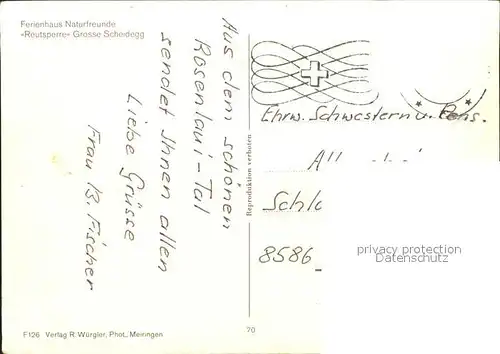 Ferienhaus Naturfreunde
«Reutsperre» Grosse Scheidegg
Aus dem schönen
Rosenlaui-Tal
sendet Ihnen allen
Liebe Grüsse
Frau B. Fischer
Reproduktion verboten
Ehrw. Schwestern u. Pens.
Schlo
8586
privacy protection
Datenschutz
F126 Verlag R. Würgler, Phot., Meiringen
70